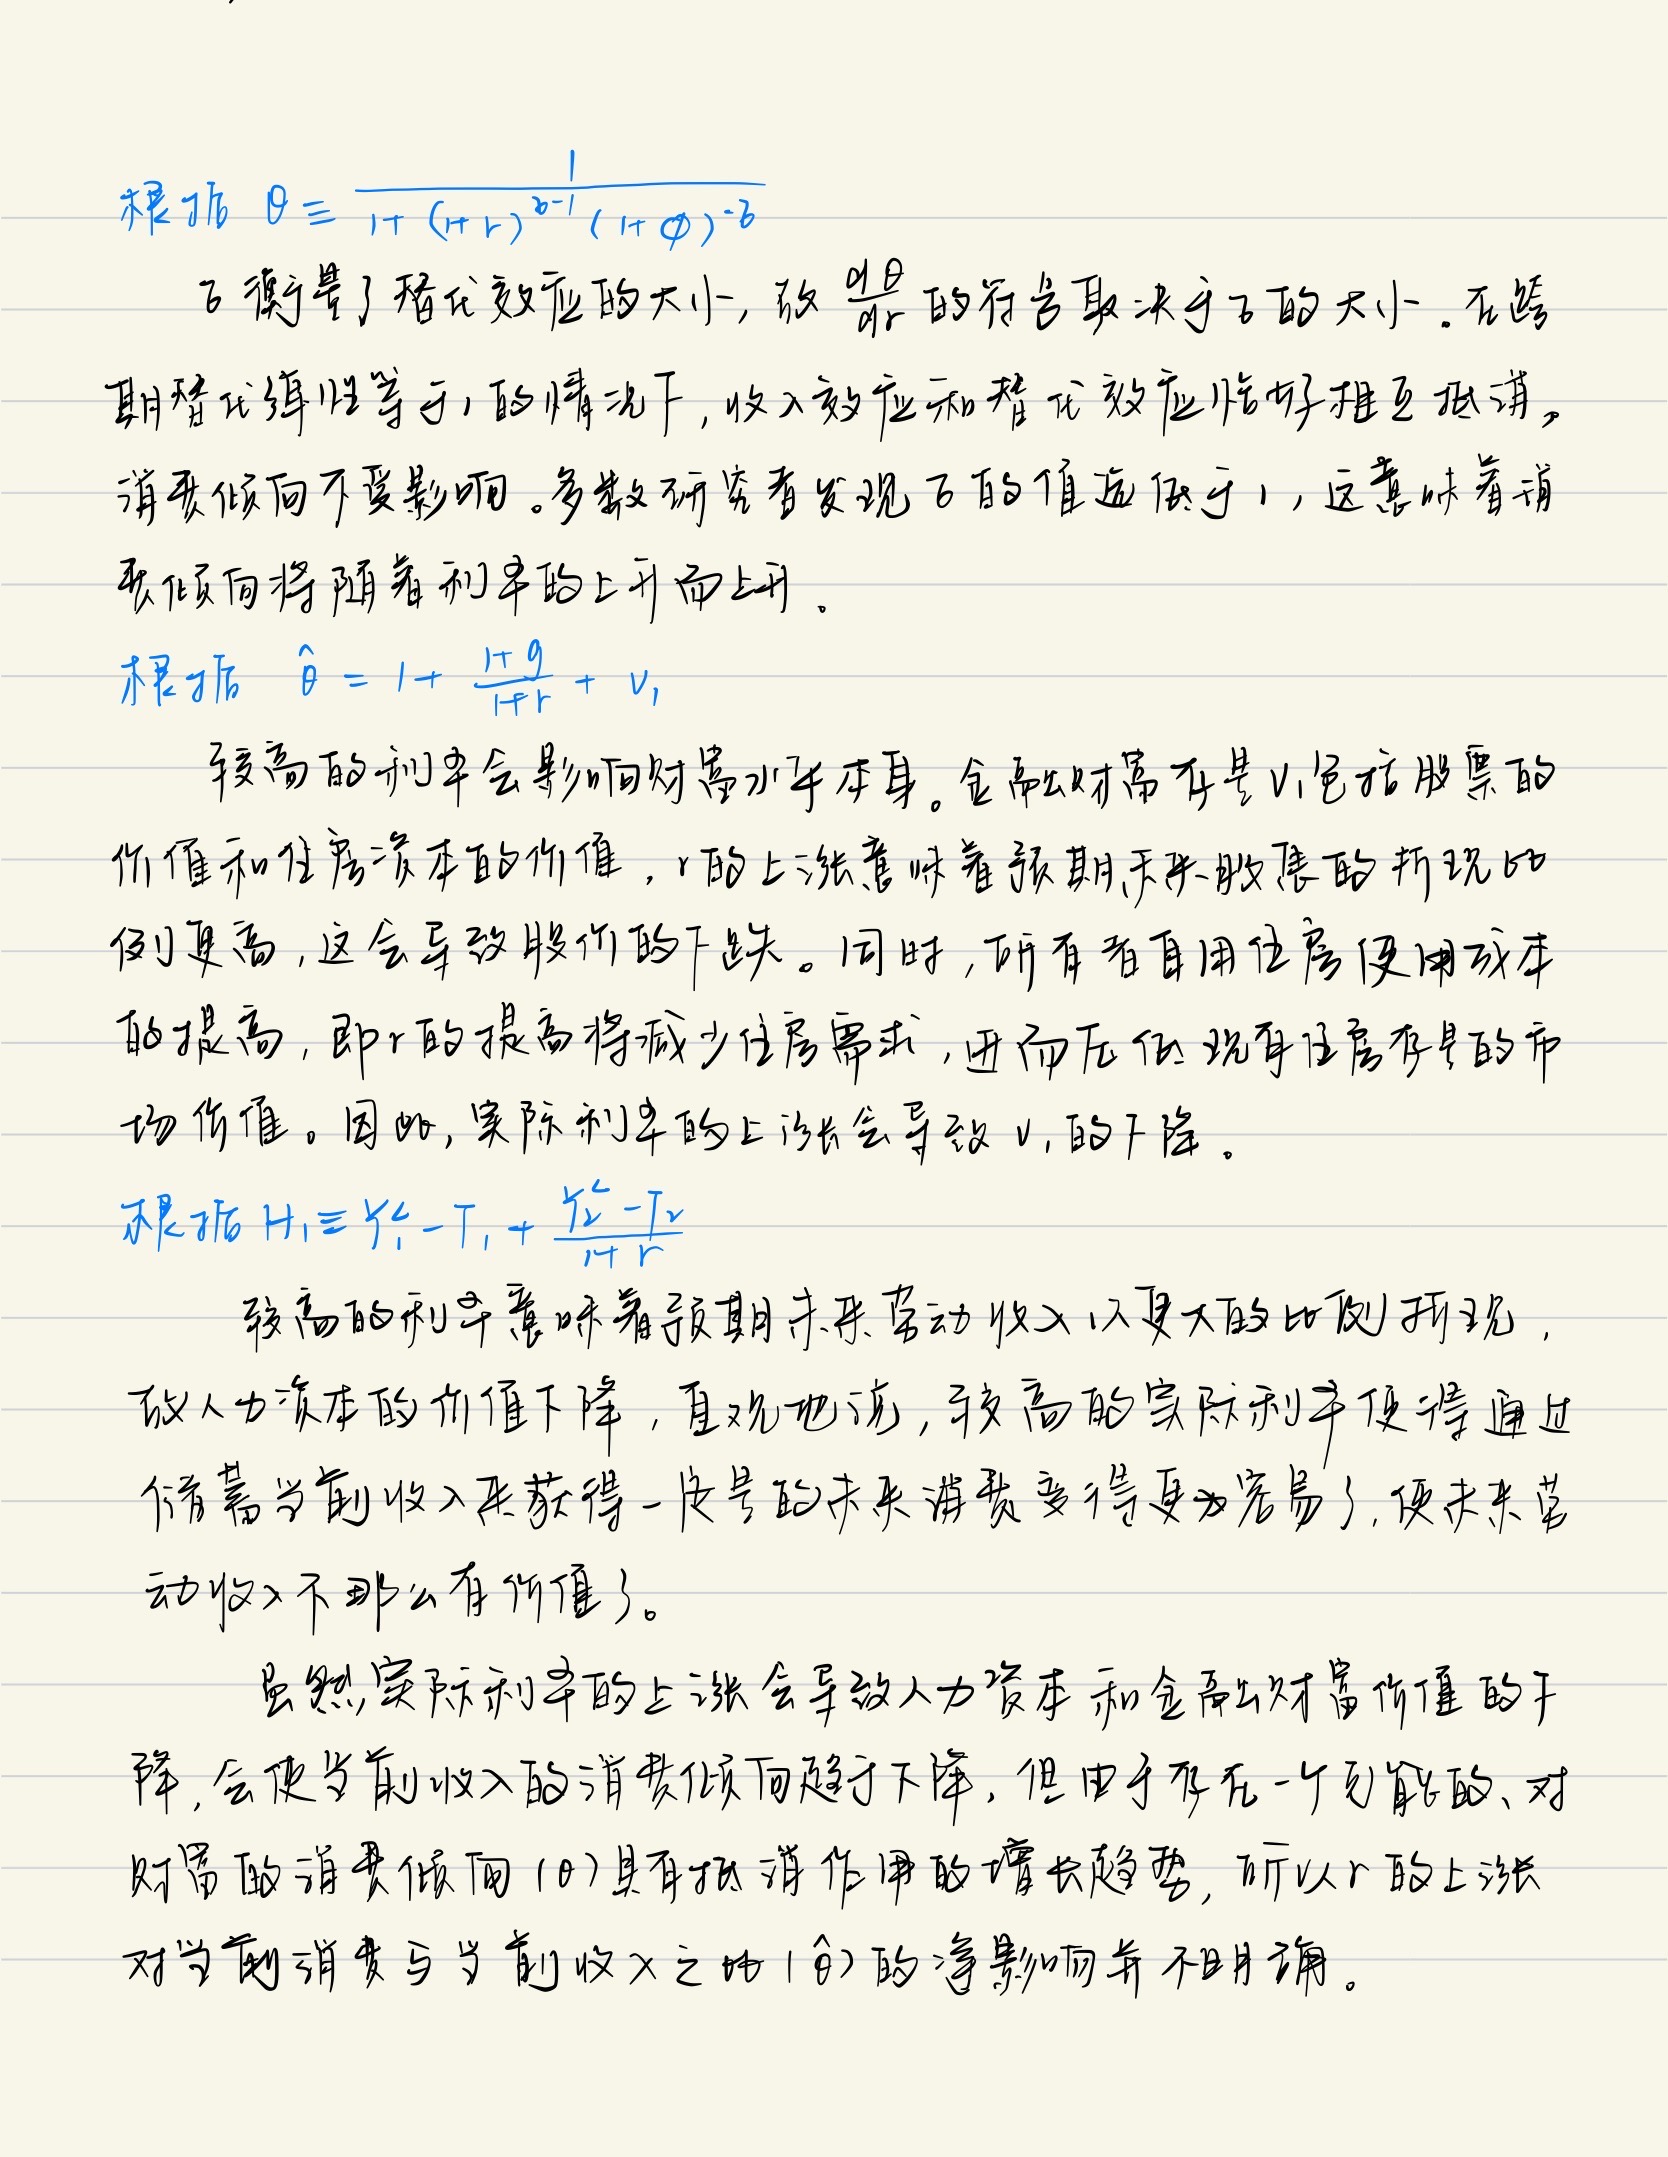 根据 θ ≡ 1 / (1+(1+r)^{σ-1}(1+φ)^{-σ})
σ衡量了替代效应的大小，故 dθ/dr 的符号取决于σ的大小。在跨
期替代弹性等于1的情况下，收入效应和替代效应恰好相互抵消，
消费倾向不受影响。多数研究者发现σ的值远低于1，这意味着消
费倾向将随着利率的上升而上升。
根据 θ̂ = 1 + (1+g)/(1+r) + v₁
较高的利率会影响财富水平本身。金融财富存量V₁包括股票的
价值和住房资本的价值，r的上涨意味着预期未来股息的折现比
例更高，这会导致股价的下跌。同时，所有者自用住房使用成本
的提高，即r的提高将减少住房需求，进而压低现有住房存量的市
场价值。因此，实际利率的上涨会导致v₁的下降。
根据 H₁ ≡ Y₁ᴸ - T₁ + (Y₂ᴸ - T₂)/(1+r)
较高的利率意味着预期未来劳动收入以更大的比例折现，
故人力资本的价值下降，直观地说，较高的实际利率使得通过
储蓄当前收入来获得一定量的未来消费变得更为容易了，使未来劳
动收入不那么有价值了。
虽然实际利率的上涨会导致人力资本和金融财富价值的下
降，会使当前收入的消费倾向趋于下降，但由于存在一个可能的、对
财富的消费倾向（θ）具有抵消作用的增长趋势，所以r的上涨
对当前消费与当前收入之比（θ̂）的净影响并不明确。